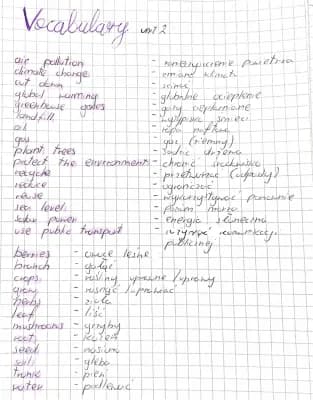 Vocabulary unit 2
air pollution - zanieczyszczenie powietrza
climate change - zmiana klimatu
cut down - ścinać
global warming - globalne ocieplenie
greenhouse gases - gazy cieplarniane
landfill - wysypisko śmieci
oil - ropa naftowa
gas - gaz (ziemny)
plant trees - sadzić drzewa
protect the environment - chronić środowisko
recycle - przetwarzać (odpady)
reduce - ograniczać
reuse - wykorzystywać ponownie
sea level - poziom morza
solar power - energia słoneczna
use public transport - używać komunikacji
publicznej
berries - owoce leśne
branch - gałąź
crops - rośliny uprawne / uprawy
grow - rosnąć / uprawiać
herbs - zioła
leaf - liść
mushrooms - grzyby
root - korzeń
seed - nasiono
soil - gleba
trunk - pień
water - podlewać